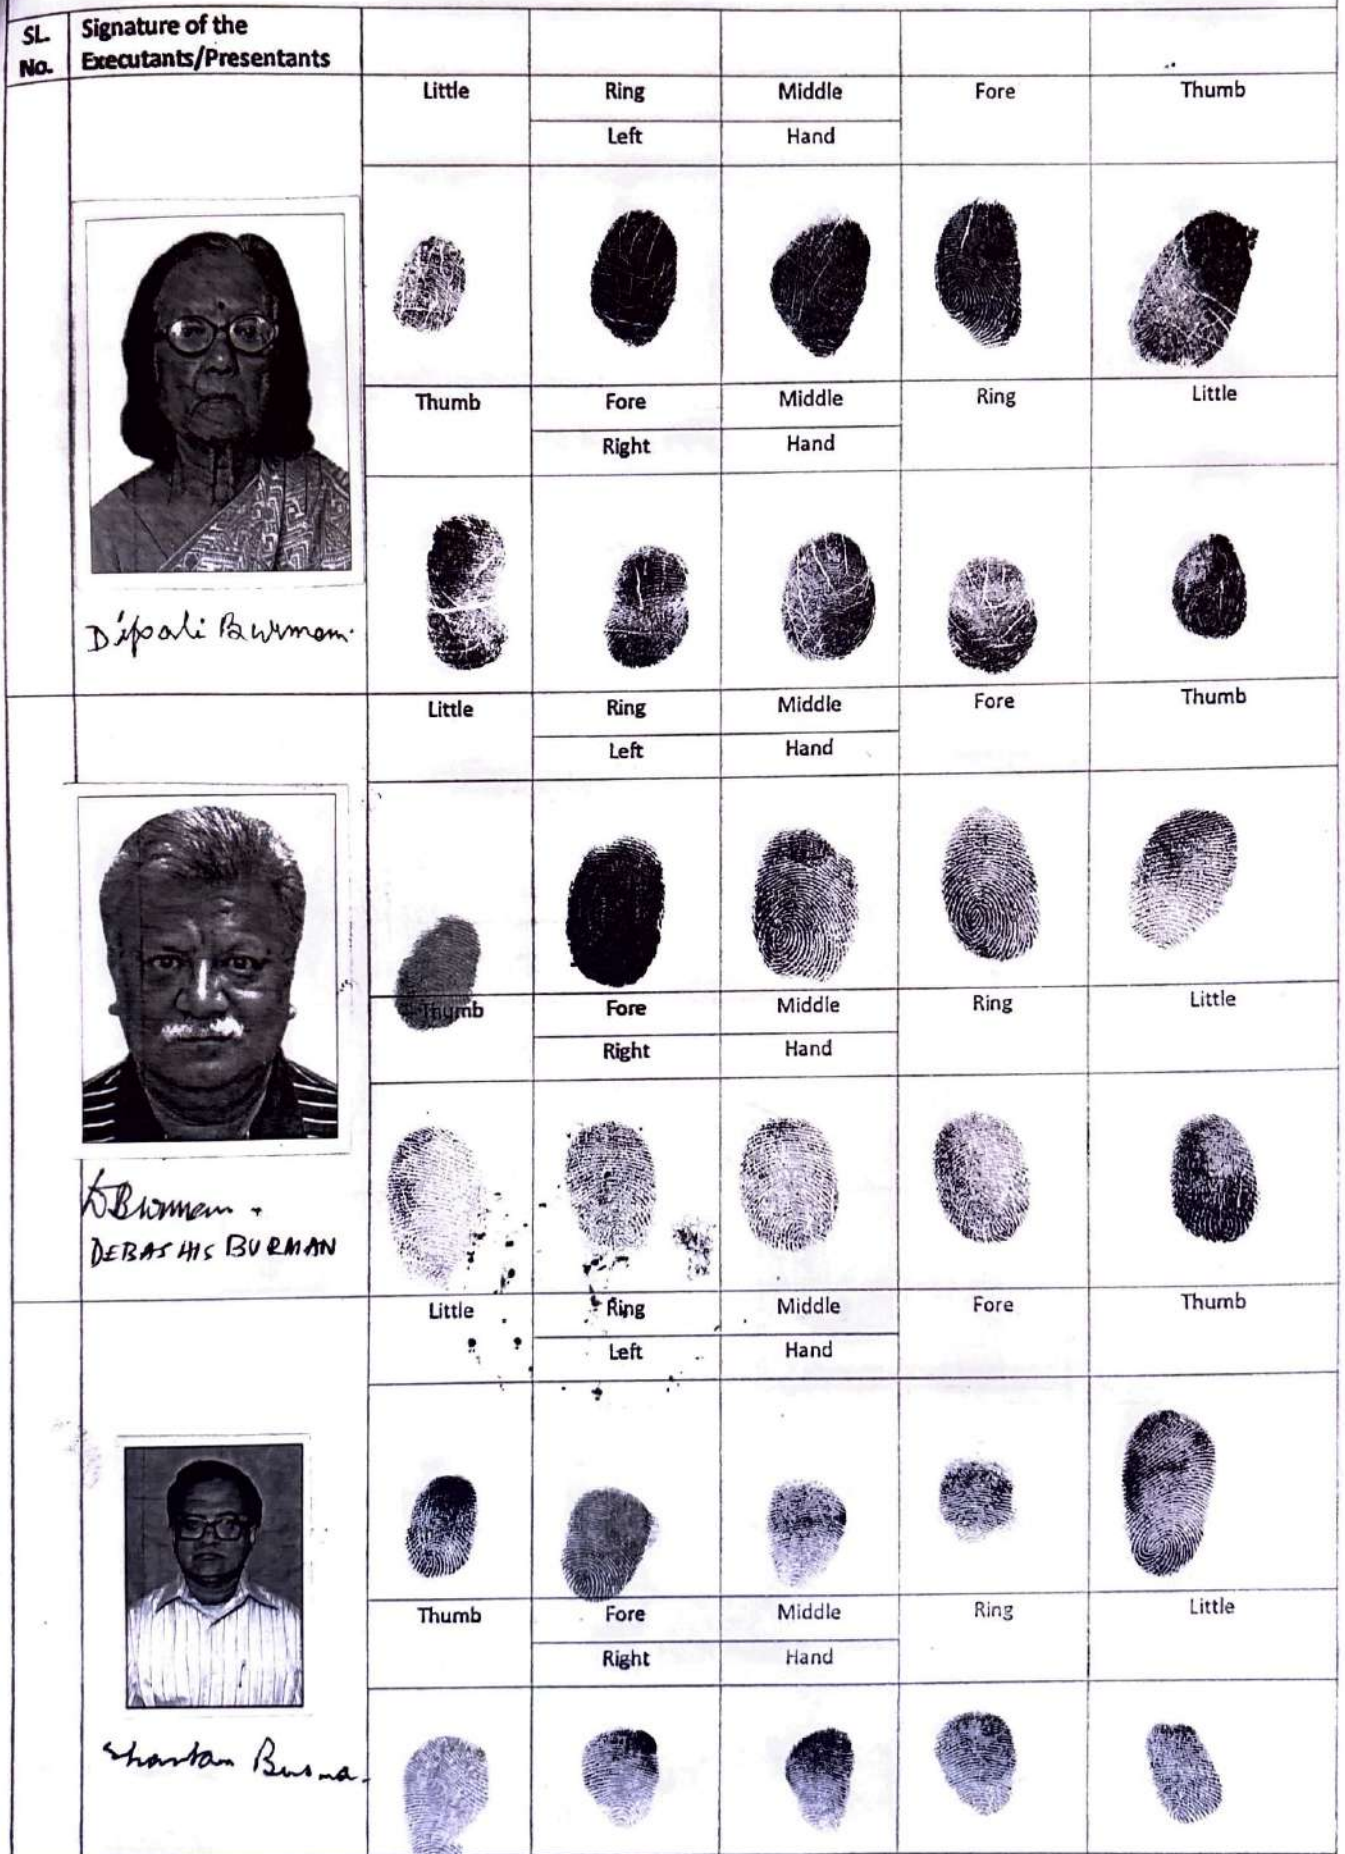 SL. Signature of the
No. Executants/Presentants
Little Ring Middle Fore Thumb
Left Hand
Thumb Fore Middle Ring Little
Right Hand
Dipali Burman.
Little Ring Middle Fore Thumb
Left Hand
Thumb Fore Middle Ring Little
Right Hand
DBurman
DEBASHIS BURMAN
Little Ring Middle Fore Thumb
Left Hand
Thumb Fore Middle Ring Little
Right Hand
Shantam Burman